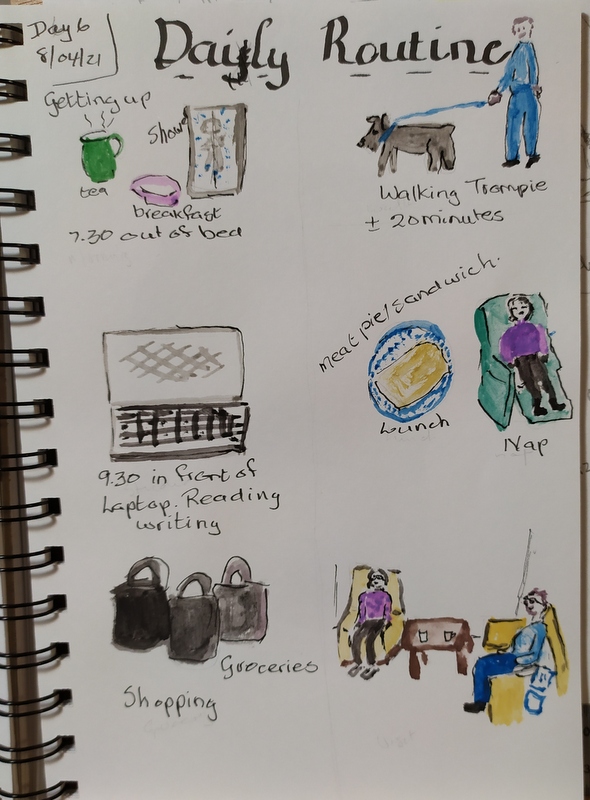 Day 6
8/04/21
Daily Routine
Getting up
Show
tea
breakfast
7.30 out of bed
Walking Trompie
± 20 minutes
meat pie/sandwich.
Lunch
Nap
9.30 in front of
Laptop. Reading
writing
Groceries
Shopping